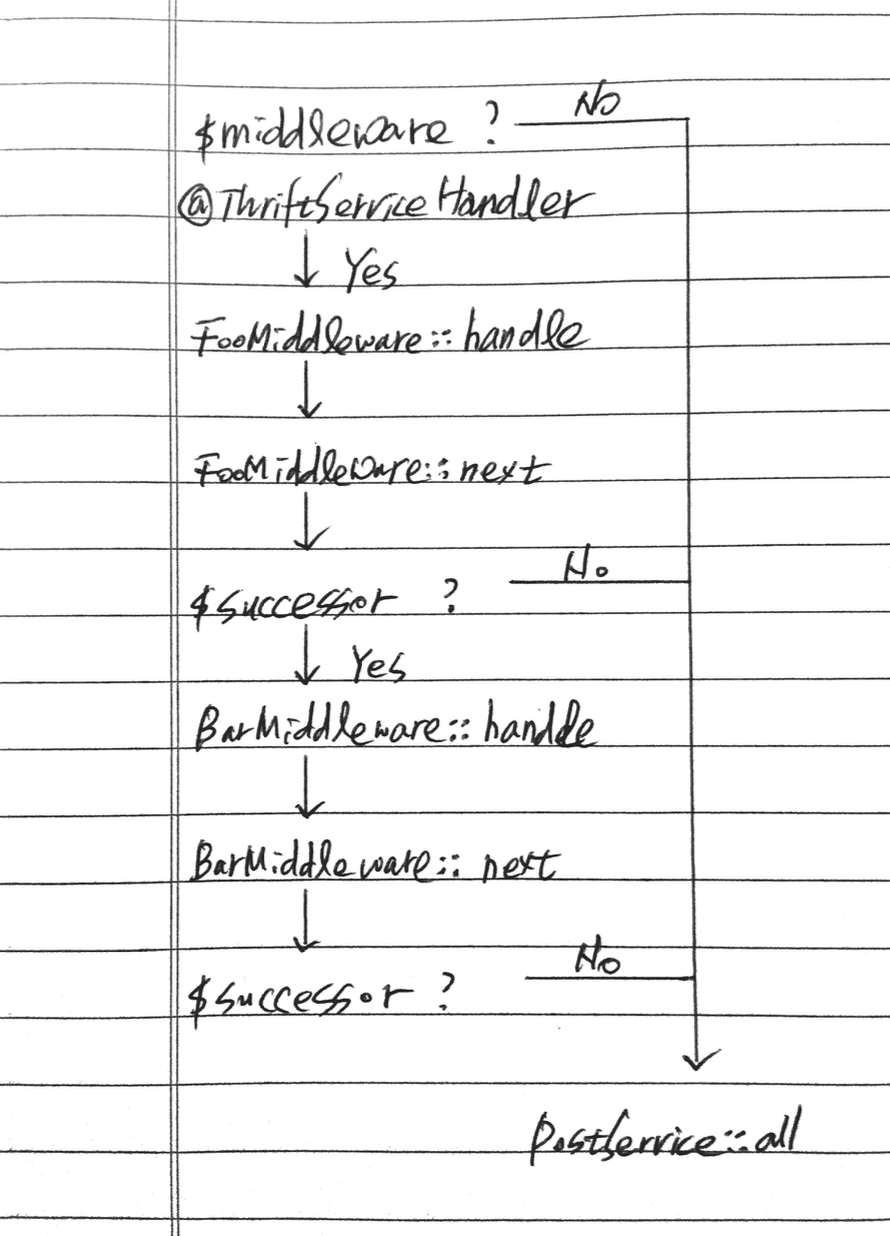 $middleware ? No
@ThriftServiceHandler
Yes
FooMiddleware::handle
FooMiddleware::next
No
$successor ?
Yes
BarMiddleware::handle
BarMiddleware::next
No
$successor ?
PostService::all